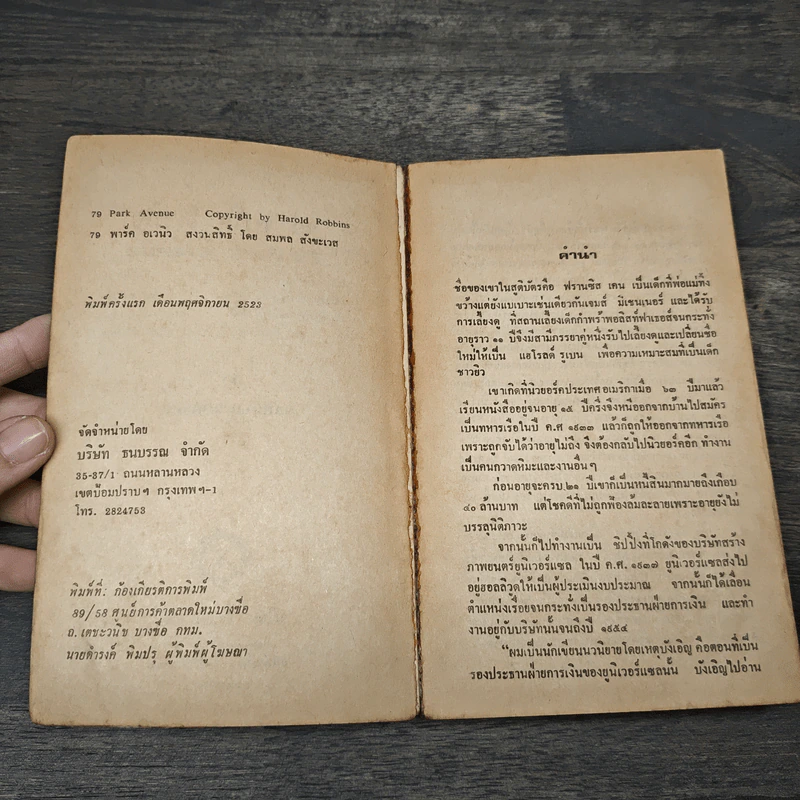 79 Park Avenue Copyright by Harold Robbins
79 พาร์ค อเวนิว สงวนสิทธิ์ โดย สมพล สังขะเวส
พิมพ์ครั้งแรก เดือนพฤศจิกายน 2523
จัดจำหน่ายโดย
บริษัท ธนบรรณ จำกัด
35-37/1 ถนนหลานหลวง
เขตป้อมปราบฯ กรุงเทพฯ-1
โทร. 2824753
พิมพ์ที่: ก้องเกียรติการพิมพ์
89/58 ศูนย์การค้าตลาดใหม่บางซื่อ
ถ.เตชะวนิช บางซื่อ กทม.
นายดำรงค์ พิมปรุ ผู้พิมพ์ผู้โฆษณา
คำนำ
ชื่อของเขาในสูติบัตรคือ ฟรานซิส เคน เป็นเด็กที่พ่อแม่ทิ้ง
ขว้างแต่ยังแบเบาะเช่นเดียวกับเจมส์ มิเชนเนอร์ และได้รับ
การเลี้ยงดู ที่สถานเลี้ยงเด็กกำพร้าพอลิสท์ฟาเธอส์จนกระทั่ง
อายุราว ๑๑ ปีจึงมีสามีภรรยาคู่หนึ่งรับไปเลี้ยงดูและเปลี่ยนชื่อ
ใหม่ให้เป็น แฮโรลด์ รูเบน เพื่อความเหมาะสมที่เป็นเด็ก
ชาวยิว
เขาเกิดที่นิวยอร์คประเทศอเมริกาเมื่อ ๖๓ ปีมาแล้ว
เรียนหนังสืออยู่จนอายุ ๑๕ ปีครึ่งจึงหนีออกจากบ้านไปสมัคร
เป็นทหารเรือในปี ค.ศ ๑๙๓๓ แล้วก็ถูกให้ออกจากทหารเรือ
เพราะถูกจับได้ว่าอายุไม่ถึง จึงต้องกลับไปนิวยอร์คอีก ทำงาน
เป็นคนกวาดหิมะและงานอื่น ๆ
ก่อนอายุจะครบ ๒๑ ปีเขาก็เป็นหนี้สินมากมายถึงเกือบ
๔๐ ล้านบาท แต่โชคดีที่ไม่ถูกฟ้องล้มละลายเพราะอายุยังไม่
บรรลุนิติภาวะ
จากนั้นก็ไปทำงานเป็น ชิปปิ้งที่โกดังของบริษัทสร้าง
ภาพยนตร์ยูนิเวอร์แซล ในปี ค.ศ. ๑๙๓๗ ยูนิเวอร์แซลส่งไป
อยู่ฮอลลิวูดให้เป็นผู้ประเมินงบประมาณ จากนั้นก็ได้เลื่อน
ตำแหน่งเรื่อยจนกระทั่งเป็นรองประธานฝ่ายการเงิน และทำ
งานอยู่กับบริษัทนั้นจนถึงปี ๑๙๕๔
“ผมเป็นนักเขียนนวนิยายโดยเหตุบังเอิญ คือตอนที่เป็น
รองประธานฝ่ายการเงินของยูนิเวอร์แซลนั้น บังเอิญไปอ่าน